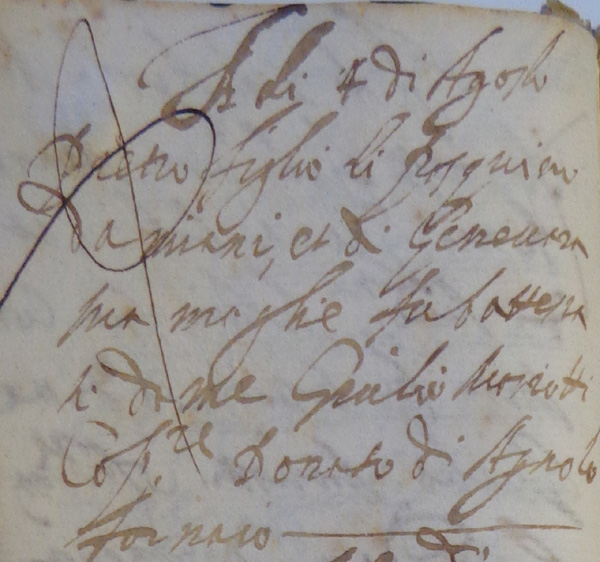 A di 4 di Agosto
Pietro figlio di Pasquino
Damiani, et di Geneuera
sua moglie fu battezza
to da me Giulio Mariotti
Comp.re Donato di Agnolo
fornaio